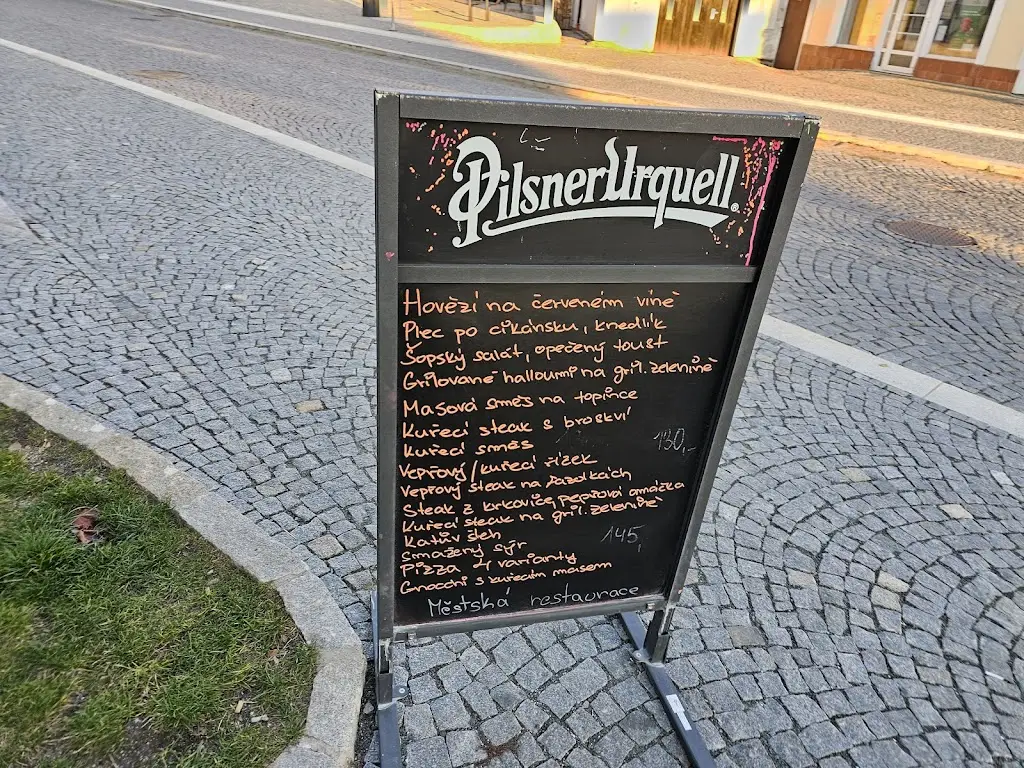 Pilsner Urquell®
Hovězí na červeném víně
Plec po cikánsku, knedlík
Šopský salát, opečený toust
Grilované halloumi na gril. zelenině
Masová směs na topince
Kuřecí steak s broskví
130,-
Kuřecí směs
Vepřový/kuřecí řízek
Vepřový steak na fazolkách
Steak z krkovice, pepřová omáčka
Kuřecí steak na gril. zelenině
Katův šleh
145,
Smažený sýr
Pizza 4 varianty
Gnocchi s kuřecím masem
Městská restaurace